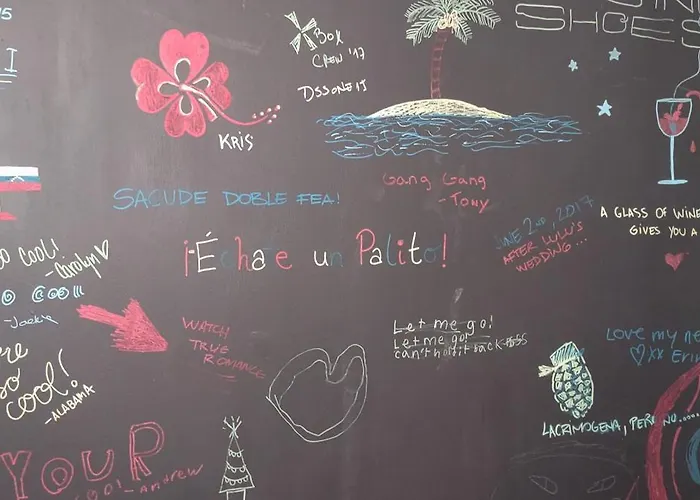 SHOES
BOX
CREW '17
DSSONEIJ
KRIS
Gang Gang
- Tony
SACUDE DOBLE FEA!
JUNE 2nd, 2017
AFTER LULU'S
WEDDING...
A GLASS OF WINE
GIVES YOU A
¡Échate un Palito!
COOL!
- Carolyn
- Jackie
WATCH
TRUE
ROMANCE
Let me go!
Let me go!
can't hold it back
LOVE my
XX Erin
so
cool!
- ALABAMA
LACRIMOGENA, PERO NO....
YOUR
- andrew